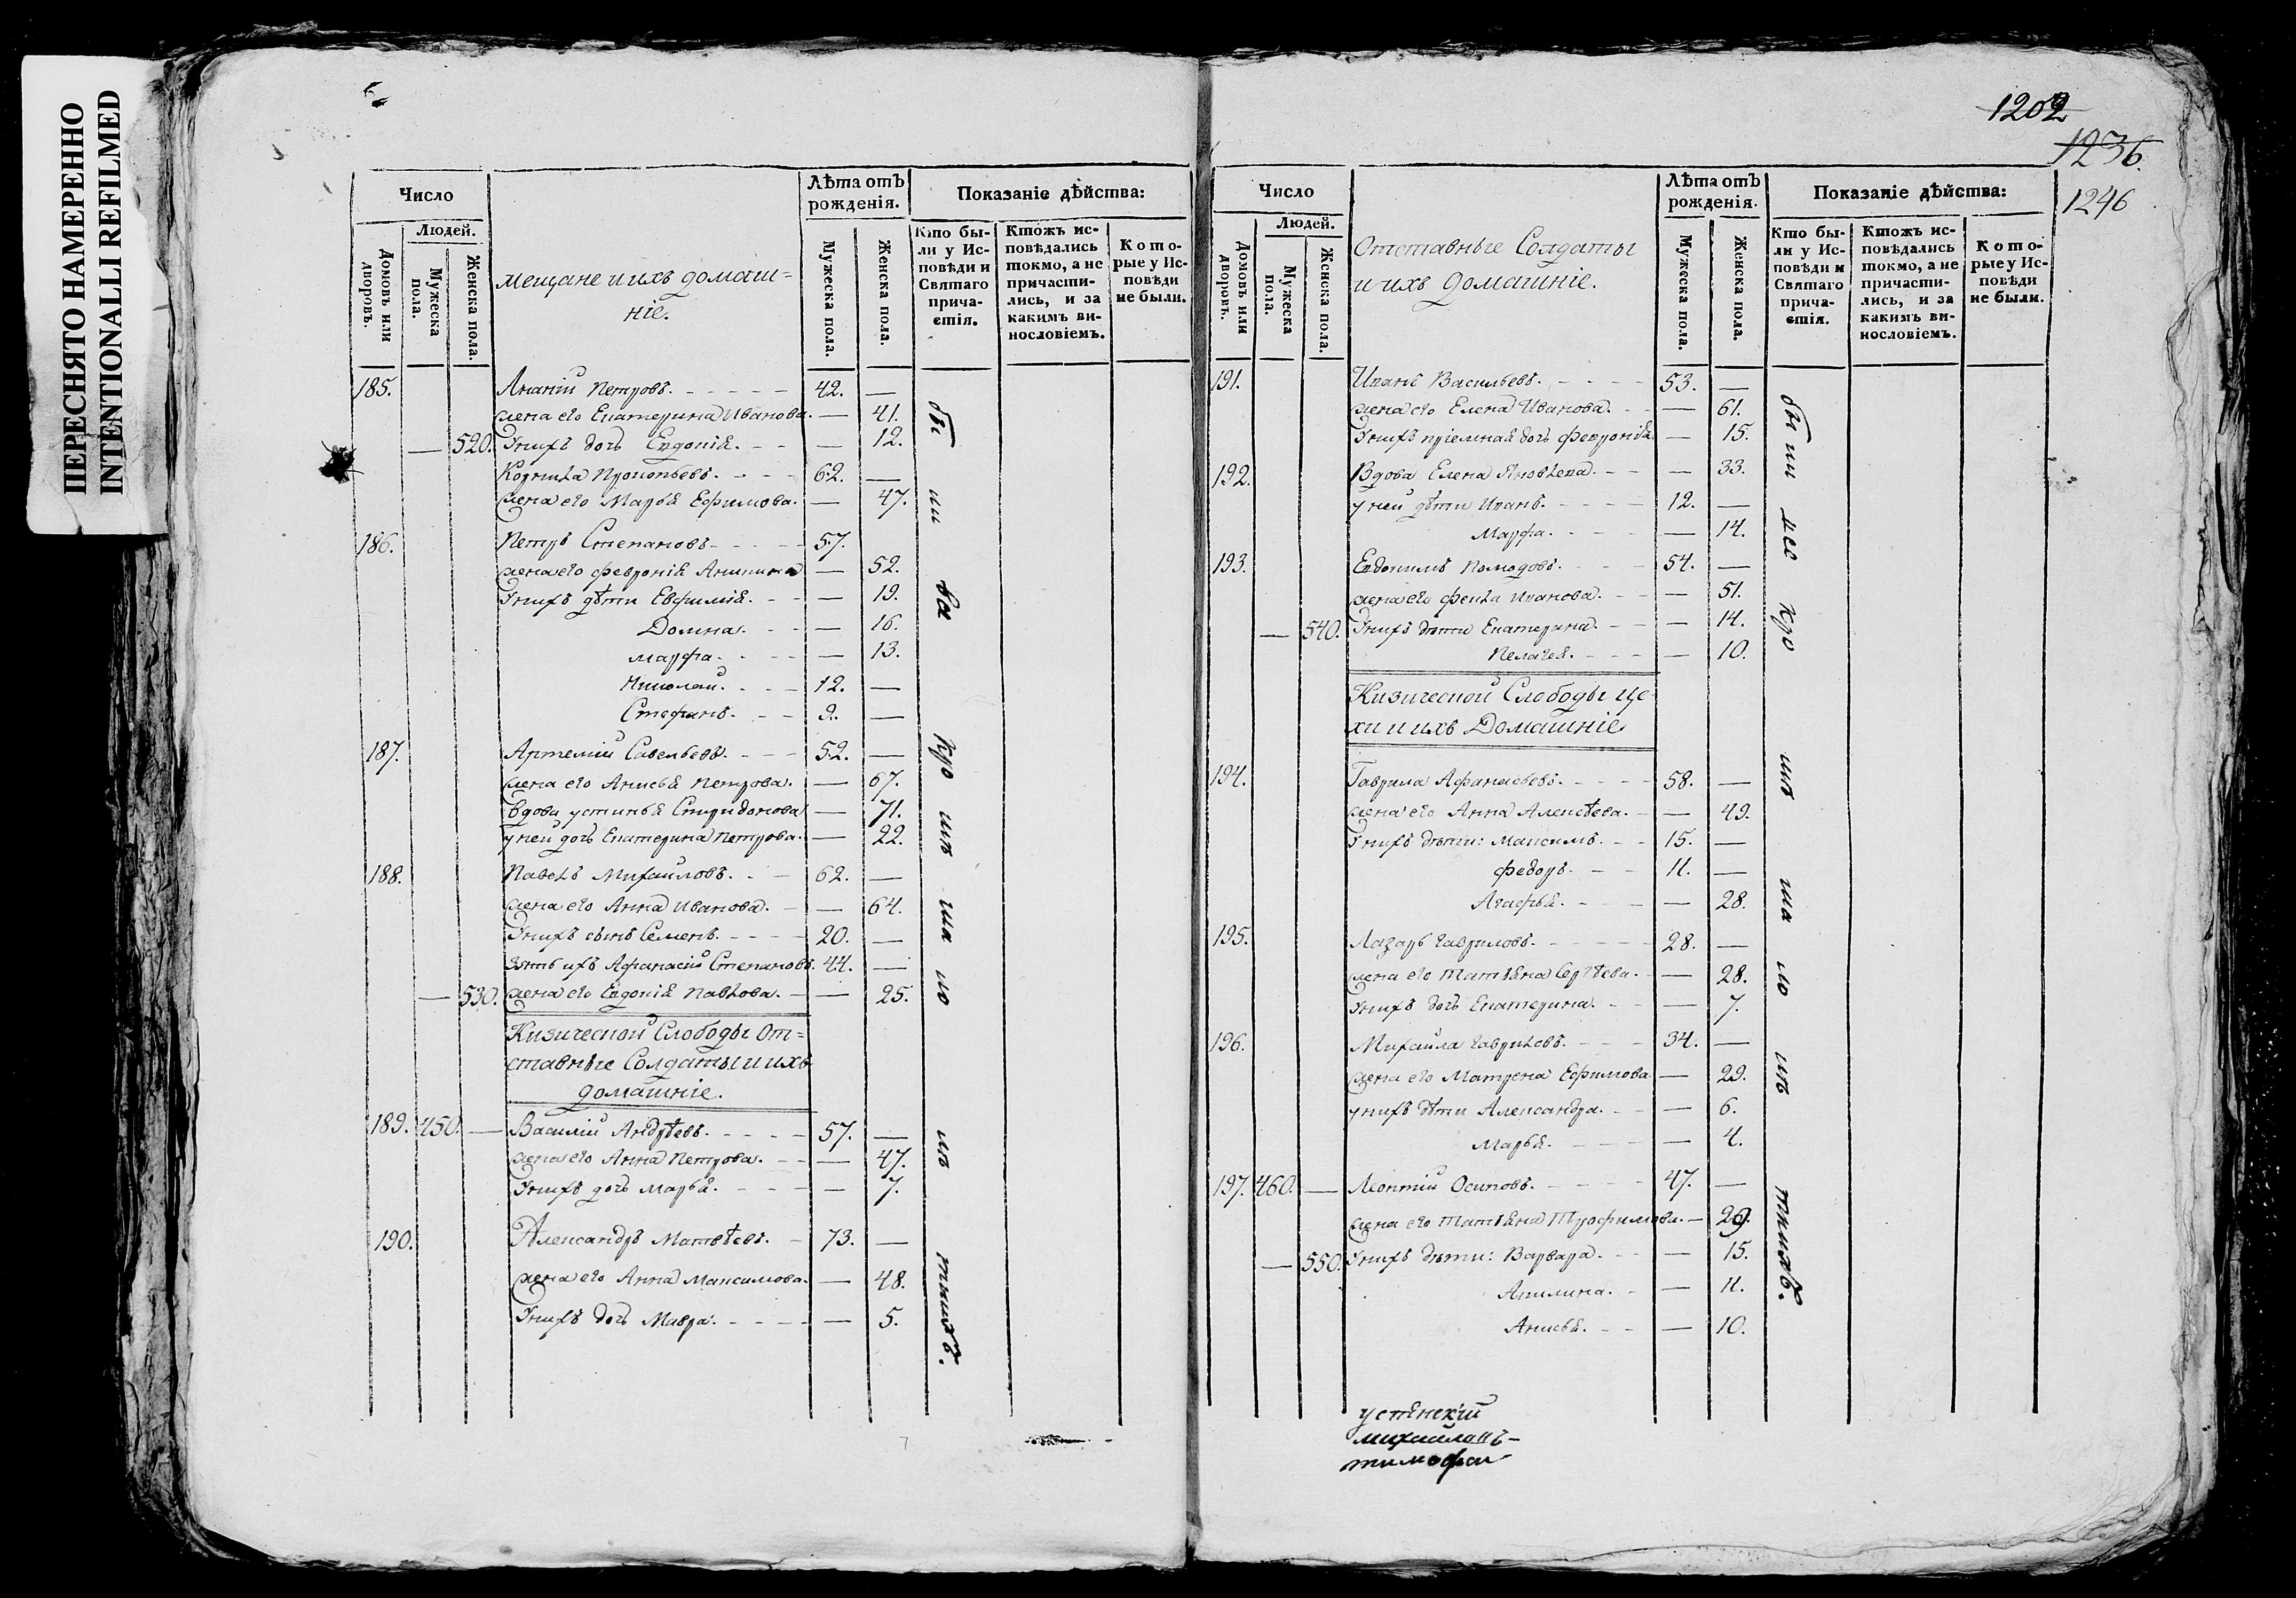 ПЕРЕСНЯТО НАМЕРЕННО
INTENTIONALLI REFILMED
Число
Людей.
Домовъ или дворовъ.
Мужеска пола.
Женска пола.
мещане и ихъ домаш=
ніе.
Лѣта отъ рожденія.
Мужеска пола.
Женска пола.
Показаніе дѣйства:
Кто бы-
ли у Ис-
повѣди и
Святаго
прича-
стія.
Ктожъ ис-
повѣдались
токмо, а не
причасти-
лись, и за
какимъ ви-
нословіемъ.
Кото-
рые у Ис-
повѣди
не были.
185. Ананій Петровъ. 42. —
жена его Екатерина Иванова. — 41.
— 520. У нихъ дочь Евдокія. — 12.
Прокопьевъ. 62. —
жена его Марья Ефимова. — 47.
186. Петръ Степановъ 57.
жена его Февронія — 52.
У нихъ дѣти Евфимія. — 19.
Домна. — 16.
Марфа. — 13.
Николай. 12. —
Стефанъ. 9. —
187. Артемій Савельевъ. 52. —
жена его Анисья Петрова. — 67.
Вдова Устинья Спиридонова — 71.
у ней дочь Екатерина Петрова. — 22.
188. Павелъ Михайловъ. 62. —
жена его Анна Иванова. — 64.
У нихъ сынъ Семенъ. 20. —
Зять ихъ Афанасій Степановъ. 44. —
— 530. жена его Евдокія Павлова. — 25.
Кизической Слободы От=
ставные Солдаты и ихъ
домашніе.
189. 450. — Василій Андрѣевъ. 57. —
жена его Анна Петрова. — 47.
У нихъ дочь Марья. — 7.
190. Александръ Матвѣевъ. 73. —
жена его Анна Максимова. — 48.
У нихъ дочь Мавра. — 5.
1202
1236.
1246
Число
Людей.
Домовъ или дворовъ.
Мужеска пола.
Женска пола.
Отставные Солдаты
и ихъ домашніе.
Лѣта отъ рожденія.
Мужеска пола.
Женска пола.
Показаніе дѣйства:
Кто бы-
ли у Ис-
повѣди и
Святаго
прича-
стія.
Ктожъ ис-
повѣдались
токмо, а не
причасти-
лись, и за
какимъ ви-
нословіемъ.
Кото-
рые у Ис-
повѣди
не были.
191. Иванъ Васильевъ. 53. —
жена его Елена Иванова. — 61.
У нихъ пріемная дочь Февронія — 15.
192. Вдова Елена Яковлева. — 33.
у ней дѣти Иванъ. 12. —
Марфа. — 14.
193. Евдокимъ 54. —
жена его Фекла Иванова. — 51.
— 540. У нихъ дѣти Екатерина. — 14.
Пелагея. — 10.
Кизической Слободы Це-
хи и ихъ Домашніе
194. Гаврила Афанасьевъ. 58. —
жена его Анна Алексѣева. — 49.
У нихъ дѣти: Максимъ. 15. —
Федоръ. 11. —
Агафья. — 28.
195. Лазарь Гавриловъ. 28. —
жена его Татьяна Сергѣева. — 28.
У нихъ дочь Екатерина. — 7.
196. Михайла Гавриловъ. 34. —
жена его Матрена Ефимова — 29.
у нихъ дѣти Александра. — 6.
Марья. — 4.
197. 460. — Леонтій Осиповъ. 47. —
жена его Татьяна Трофимова. — 29.
— 550. У нихъ дѣти: Варвара. — 15.
Акилина. — 11.
Анисья. — 10.
михайлонъ-
тимофеи